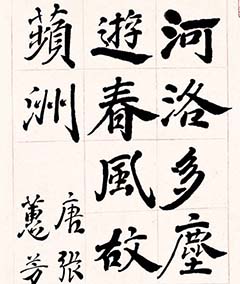 河洛多塵
遊春風故
蘋洲
唐張
蕙芳